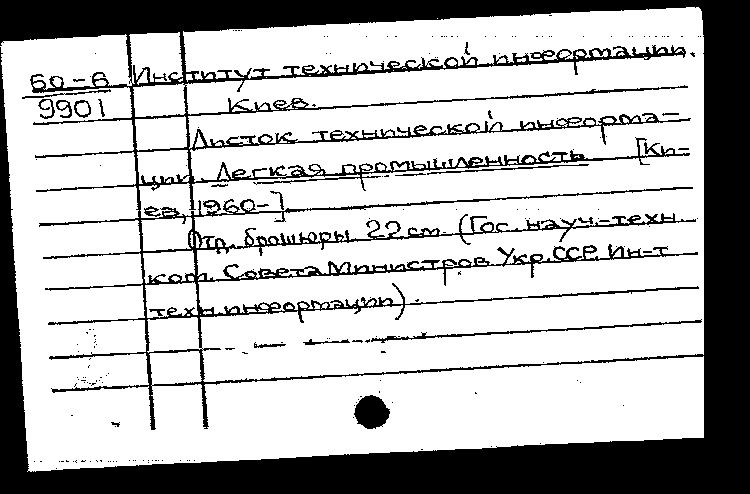 60-6 Институт технической информации.
9901 Киев.
Листок технической информа=
ции. Легкая промышленность [Ки=
ев, 1960-]
Отд. брошюры. 22 см. (Гос. науч.-техн.
ком. Совета Министров Укр. ССР. Ин-т
техн. информации).